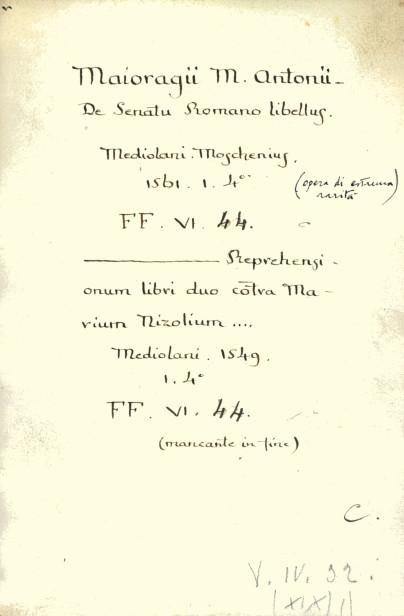 Maioragii M. Antonii -
De Senatu Romano libellus.
Mediolani. Moschenius.
1561. 1. 4°
(opera di estrema
rarità)
FF. VI. 44.
———— Reprehensi -
onum libri duo cōtra Ma -
rium Nizolium ....
Mediolani. 1549.
1. 4°
FF. VI. 44.
(mancante in fine)
C.
V. IV. 92.
(XIX) 1)